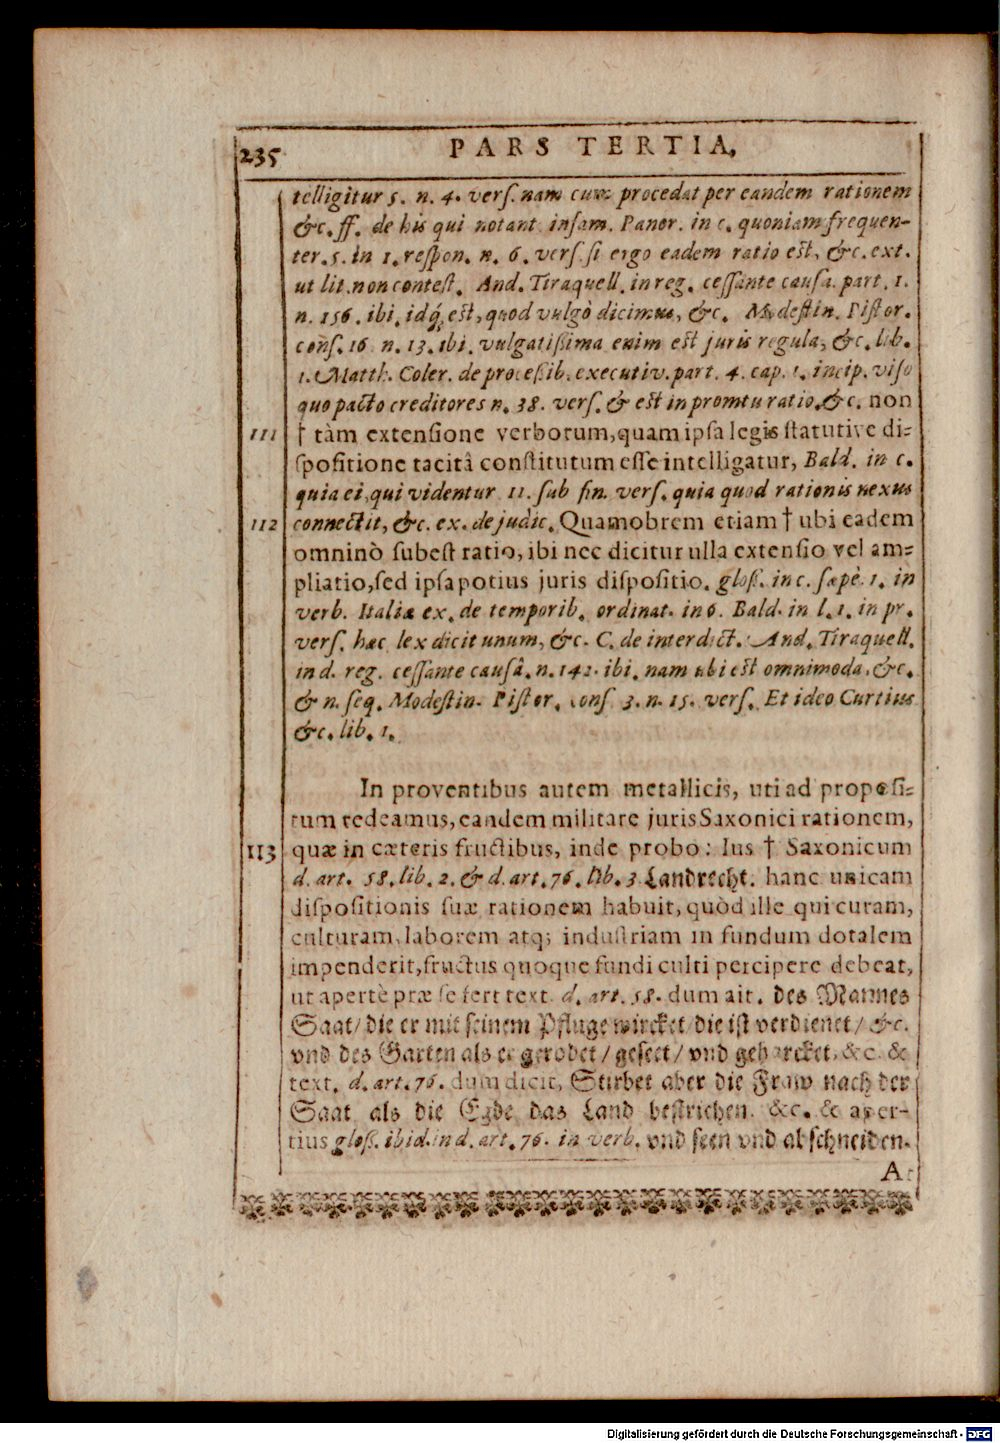 235
PARS TERTIA,
telligitur 5. n. 4. verſ. nam cum procedat per eandem rationem
&c. ff. de his qui notant infam. Panor. in c. quoniam frequen-
ter. 5. in 1. reſpon. n. 6. verſ. ſi ergo eadem ratio eſt, &c. ext.
ut lit. non conteſt. And. Tiraquell. in reg. ceſſante cauſa. part. 1.
n. 156. ibi. idq; eſt, quod vulgò dicimus, &c. Modeſtin. Piſtor.
conſ. 16 n. 13. ibi. vulgatißima enim eſt juris regula, &c. lib.
1. Matth. Coler. de proceßib. executiv. part. 4. cap. 1. incip. viſo
quo pacto creditores n. 38. verſ. & eſt in promtu ratio. &c. non
111 † tàm extenſione verborum, quam ipſa legis ſtatutive di-
ſpoſitione tacitâ conſtitutum eſſe intelligatur, Bald. in c.
quia ei, qui videntur 11. ſub fin. verſ. quia quod rationis nexus
112 connectit, &c. ex. de judic. Quamobrem etiam † ubi eadem
omninò ſubeſt ratio, ibi nec dicitur ulla extenſio vel am-
pliatio, ſed ipſa potius juris diſpoſitio. gloß. in c. ſæpè. 1. in
verb. Italiæ ex. de temporib. ordinat. in 6. Bald. in l. 1. in pr.
verſ. hæc lex dicit unum, &c. C. de interdict. And. Tiraquell.
in d. reg. ceſſante causâ. n. 142. ibi. nam ubi eſt omnimoda. &c.
& n. ſeq. Modeſtin. Piſtor. conſ 3. n. 15. verſ. Et ideo Curtius
&c. lib. 1.
In proventibus autem metallicis, uti ad propoſi-
tum redeamus, eandem militare juris Saxonici rationem,
113 quæ in cæteris fructibus, inde probo: Ius † Saxonicum
d. art. 58. lib. 2. & d. art. 76. lib. 3 Landrecht. hanc unicam
diſpoſitionis ſuæ rationem habuit, quòd ille qui curam,
culturam, laborem atq; induſtriam in fundum dotalem
impenderit, fructus quoque fundi culti percipere debeat,
ut apertè præ ſe fert text. d. art. 58. dum ait. des Mannes
Saat / die er mit ſeinem Pfluge wircket / die iſt verdienet / &c.
vnd des Garten als er gerodet / geſeet / vnd geharcket. &c. &
text. d. art. 76. dum dicit, Stirbet aber die Fraw nach der
Saat als die Egde das Land beſtrichen. &c. & aper-
tius gloß. ibid. in d. art. 76. in verb. vnd ſeen vnd abſchneiden.
Digitalisierung gefördert durch die Deutsche Forschungsgemeinschaft - DFG